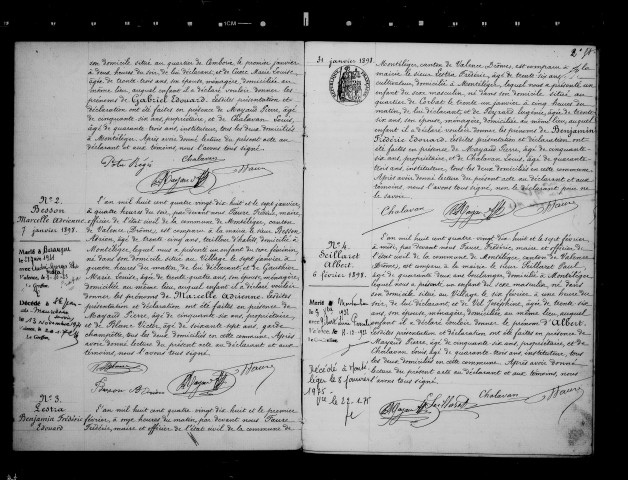 son domicile situé au quartier de Combour le premier janvier
à deux heures du soir, de lui déclarant et de Cotte Marie Louise,
âgée de trente trois ans, son épouse, ménagère, domiciliée au même
lieu, auquel enfant il a déclaré vouloir donner les
prénoms de Gabriel Edouard. Lesdites présentation et déclaration
ont été faites en présence de Mayaud Pierre, âgé de
cinquante six ans, propriétaire, et de Chalavan Louis,
âgé de quarante trois ans, instituteur, tous les deux domiciliés
à Montéléger. Après avoir donné lecture du présent acte au
déclarant et aux témoins, nous l'avons tous signé.
Chalavan
N° 2.
Besson
Marcelle Adrienne
7 janvier 1898.
L'an mil huit cent quatre vingt dix huit et le sept janvier
à quatre heures du soir, par devant nous Faure Frédéric, maire
officier de l'état civil de la commune de Montéléger, canton
de Valence, Drôme, est comparu à la mairie le sieur Besson
Adrien, âgé de trente cinq ans, tailleur d'habits, domicilié à
Montéléger, lequel nous a présenté un enfant du sexe féminin, né
dans son domicile, situé au Village le sept janvier à
quatre heures du matin, de lui déclarant et de Gauthier
domiciliée au même lieu, auquel enfant il a déclaré vouloir
donner les prénoms de Marcelle Adrienne. Lesdites
présentation et déclaration ont été faites en présence de
Mayaud Pierre, âgé de cinquante six ans, propriétaire
et de Blanc Victor, âgé de soixante sept ans, garde
champêtre, tous les deux domiciliés en cette commune. Après
avoir donné lecture du présent acte au déclarant et aux
témoins, nous l'avons tous signé.
Marié à
le
1921
Décédée à
le 13 novembre 1974
Le Greffier
N° 3.
Lestra
Benjamin Frédéric
Edouard
L'an mil huit cent quatre vingt dix huit et le premier
février, à onze heures du matin par devant nous Faure
Frédéric, maire et officier de l'état civil de la commune de
31 janvier 1898.
Montéléger, canton de Valence, Drôme, est comparu à la
mairie le sieur Lestra Frédéric, âgé de trente six ans,
cultivateur, domicilié à Montéléger, lequel nous a présenté un
enfant du sexe masculin, né dans son domicile situé au
quartier de Corbat le trente un janvier à cinq heures du
matin, de lui déclarant et de Peyrard Eugénie, âgée de trente
six ans son épouse, ménagère, domiciliée au même lieu, auquel
enfant il a déclaré vouloir donner les prénoms de Benjamin
Frédéric Edouard. Lesdites présentation et déclaration ont
été faites en présence de Mayaud Pierre, âgé de cinquante
six ans, propriétaire, et de Chalavan Louis, âgé de quarante
trois ans, instituteur, tous les deux domiciliés en cette commune.
Après avoir donné lecture du présent acte au déclarant et aux
témoins, nous l'avons tous signé, non le déclarant pour ne
le savoir.
Chalavan
Faure
N° 4.
Seillaret
Albert.
6 février 1898.
L'an mil huit cent quatre vingt dix huit et le sept février
à midi, par devant nous Faure Frédéric, maire et officier de
l'état civil de la commune de Montéléger, canton de Valence,
Drôme, est comparu à la mairie le sieur Seillaret Paul
lequel nous a présenté un enfant du sexe masculin, né dans
son domicile situé au Village le six février, à une heure du
soir, de lui déclarant et de Val Joséphine, âgée de trente
ans, son épouse, ménagère, domiciliée au même lieu, auquel enfant
il a déclaré vouloir donner le prénom d'Albert.
Lesdites présentation et déclaration ont été faites en présence de
Mayaud Pierre, âgé de cinquante six ans, propriétaire, et de
Chalavan Louis, âgé de quarante trois ans, instituteur, tous
les deux domiciliés en cette commune. Après avoir donné
lecture du présent acte au déclarant et aux témoins, nous
l'avons tous signé.
Marié à
Décédé à
le 8 janvier
1975
Chalavan
Faure
Seillaret